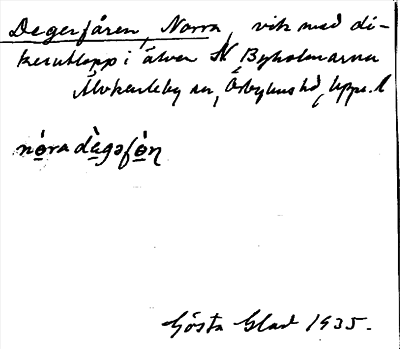 Degerfåren, Norra, vik med di-
kesutlopp i älven N Byholmarna
Älvkarleby sn, Örbyhus hd, Upps. l
nò̱ra dὰ̱gəfò̱ŋ
Gösta Glad 1935.